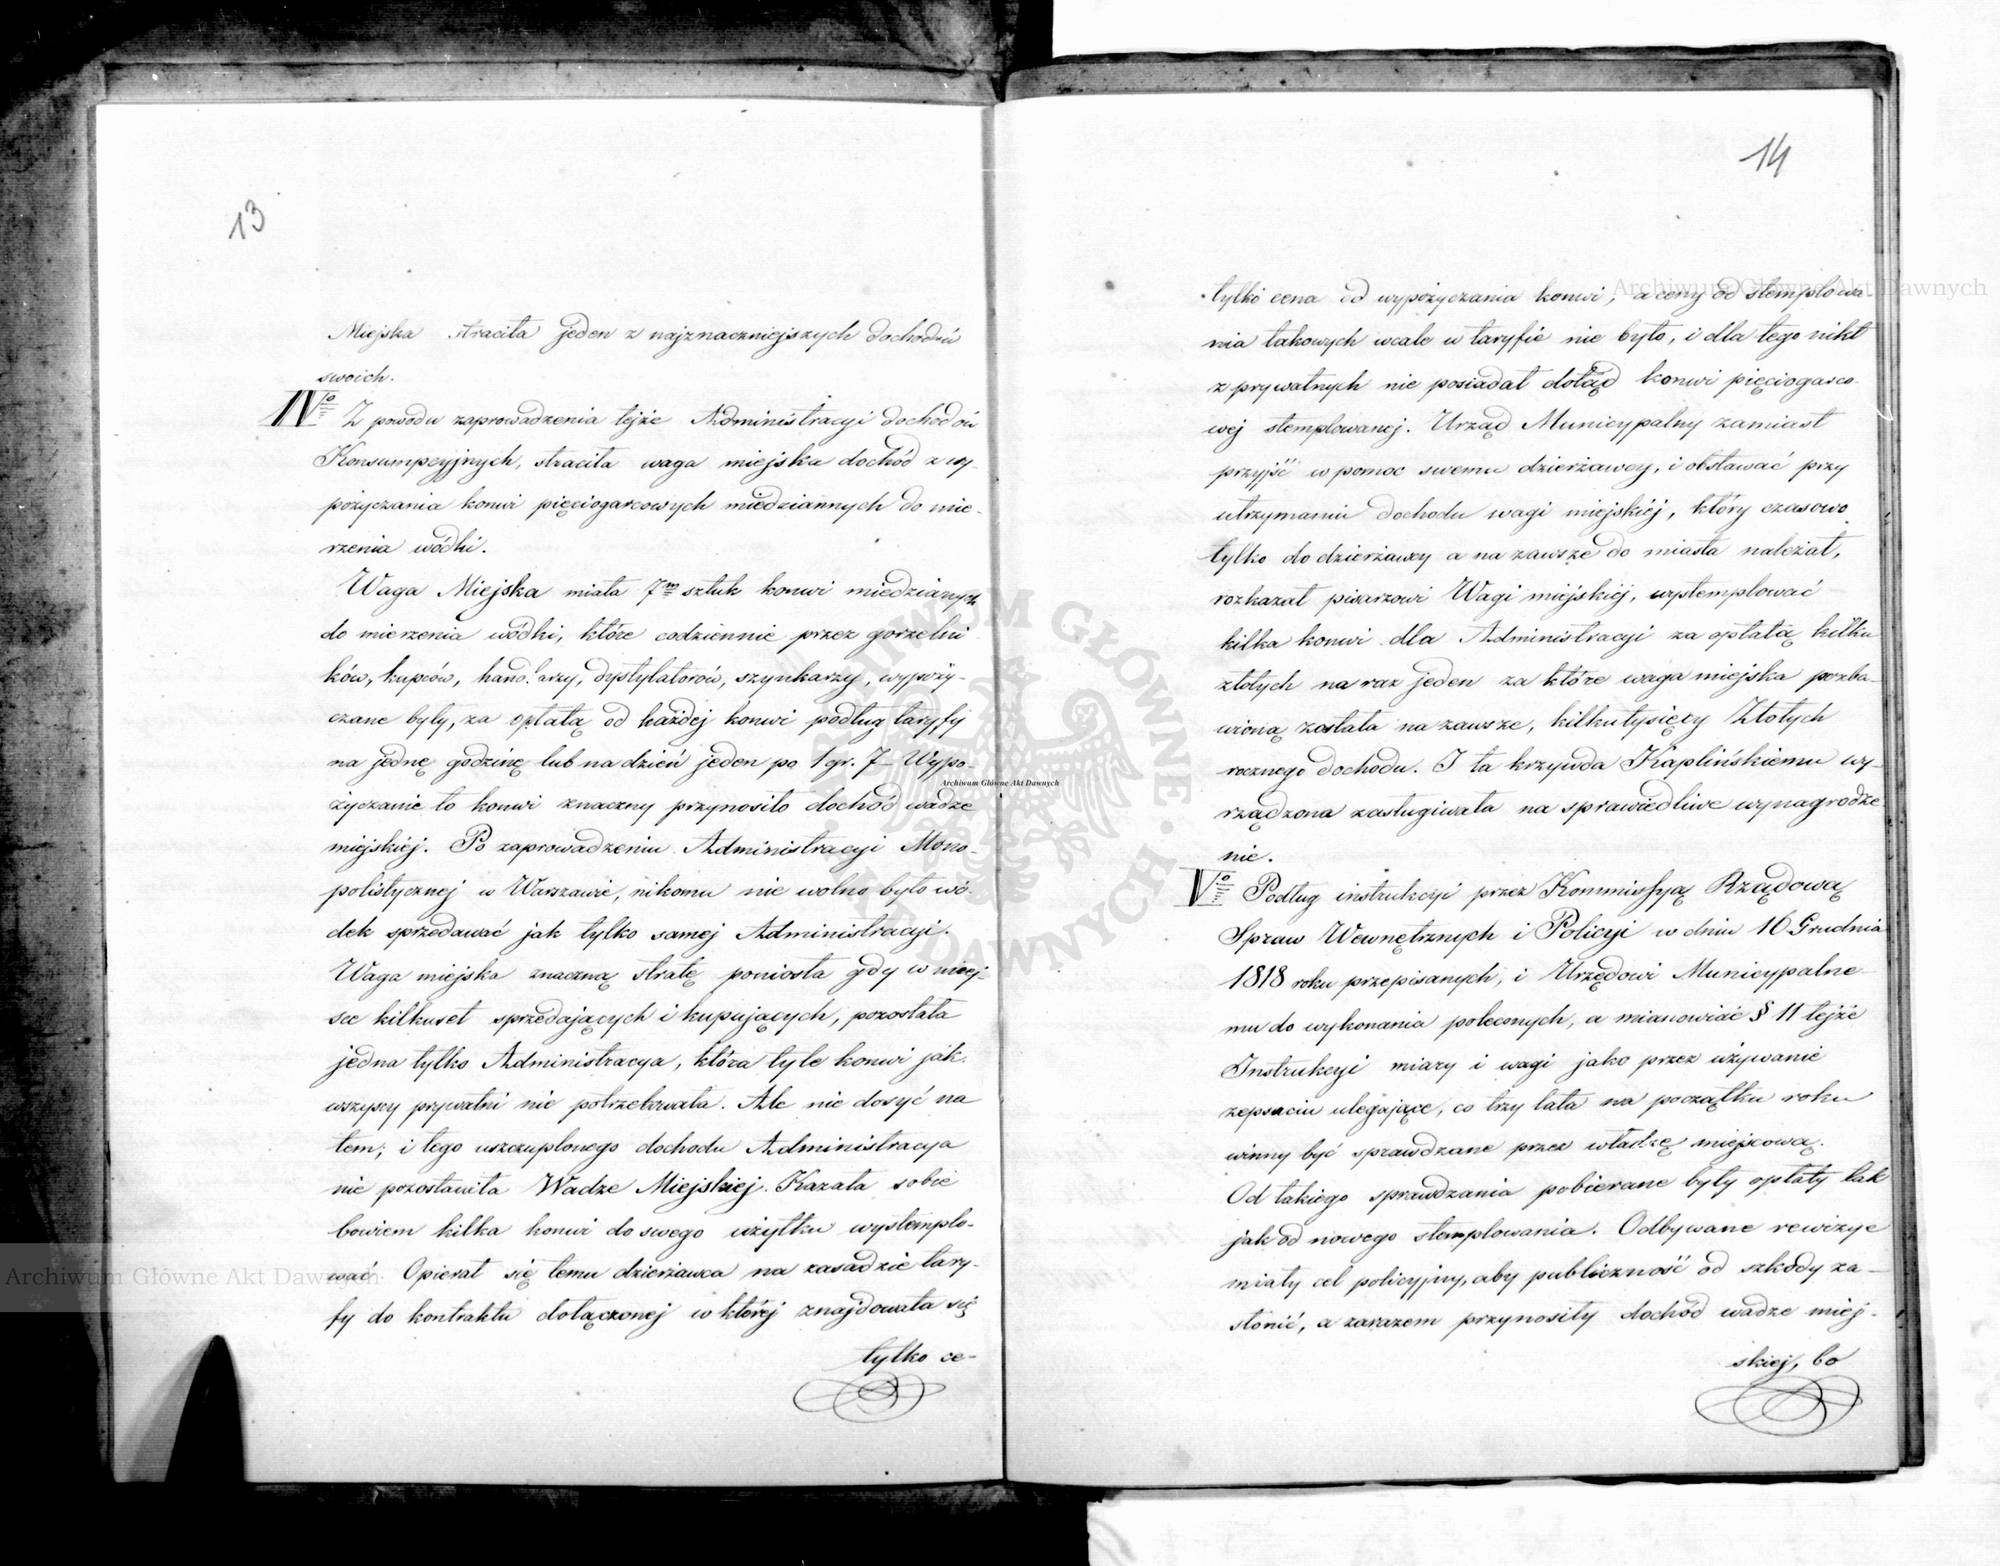 13
Miejska straciła jeden z najznaczniejszych dochodów
swoich.
IVto Z powodu zaprowadzenia tejże Administracyi dochodów
Konsumpcyjnych, straciła waga miejska dochód z wy-
pożyczania konwi pięciogarcowych miedziannych do mie-
rzenia wódki.
Waga Miejska miała 7m sztuk konwi miedzianych
do mierzenia wódki, które codziennie przez gorzelni
ków, kupców, handlarzy, dystylatorów, szynkarzy, wypoży-
czane były, za opłatą od każdej konwi podług taryfy
na jednę godzinę lub na dzień jeden po 1 gr. 7 – Wypo-
życzanie to konwi znaczny przynosiło dochód wadze
miejskiéj. Po zaprowadzeniu Administracyi Mono-
polistycznej w Warszawie, nikomu nie wolno było wó-
dek sprzedawać jak tylko samej Administracyi.
Waga miejska znaczną stratę poniosła gdy w miej-
sce kilkuset sprzedających i kupujących, pozostała
jedna tylko Administracya, która tyle konwi jak
wszyscy prywatni nie potrzebowała. Ale nie dosyć na
tem; i tego uszczuplonego dochodu Administracya
nie pozostawiła Wadze Miejskiej. Kazała sobie
bowiem kilka konwi do swego użytku wystemplo-
wać. Opierał się temu dzierżawca na zasadzie tary-
fy do kontraktu dołączonej w której znajdowała się
tylko ce-
14
tylko cena od wypożyczania konwi, a ceny od stemplowa-
nia takowych wcale w taryfie nie było, i dla tego nikt
z prywatnych nie posiadał dotąd konwi pięciogarco-
wej stemplowanej. Urząd Municypalny zamiast
przyjść w pomoc swemu dzierżawcy, i obstawać przy
utrzymaniu dochodu wagi miejskiéj, który czasowo
tylko do dzierżawcy a na zawsze do miasta należał,
rozkazał pisarzowi Wagi miejskiéj, wystemplować
kilka konwi dla Administracyi za opłatą kilku
złotych na raz jeden za które waga miejska pozba-
wioną została na zawsze, kilkutysięcy Złotych
rocznego dochodu. I ta krzywda Kaplińskiemu wy-
rządzona zasługiwała na sprawiedliwe wynagrodze
nie.
Vto Podług instrukcyi przez Kommissyą Rządową
Spraw Wewnętrznych i Policyi w dniu 16 Grudnia
1818 roku przepisanych, i Urzędowi Municypalne-
mu do wykonania poleconych, a mianowicie § 11 tejże
Instrukcyi miary i wagi jako przez używanie
zepsuciu ulegające, co trzy lata na początku roku
winny być sprawdzane przez władzę miejscową.
Od takiego sprawdzania pobierane były opłaty tak
jak od nowego stemplowania. Odbywane rewizye
miały cel policyjny, aby publiczność od szkody za-
słonić, a zarazem przynosiły dochód wadze miej-
skiej, bo
Archiwum Główne Akt Dawnych
Archiwum Główne Akt Dawnych
Archiwum Główne Akt Dawnych
ARCHIWUM GŁÓWNE AKT DAWNYCH